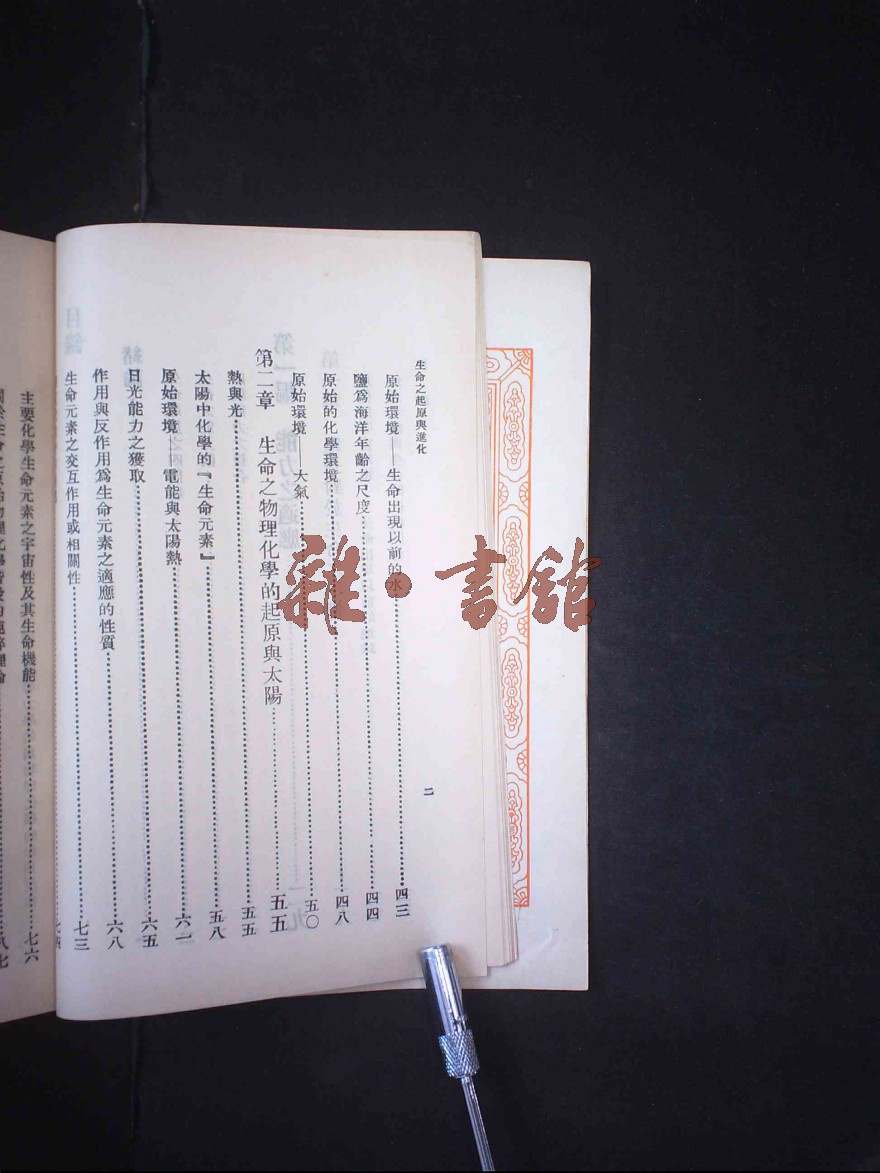 生命之起原與進化
二
原始環境——生命出現以前的水 四三
鹽爲海洋年齡之尺度 四四
原始的化學環境 四八
原始環境——大氣 五〇
第二章 生命之物理化學的起原與太陽 五五
熱與光 五五
太陽中化學的『生命元素』 五八
原始環境——電能與太陽熱 六一
日光能力之獲取 六五
作用與反作用爲生命元素之適應的性質 六八
生命元素之交互作用或相關性 七三
主要化學生命元素之宇宙性及其生命機能 七六
雜·書館